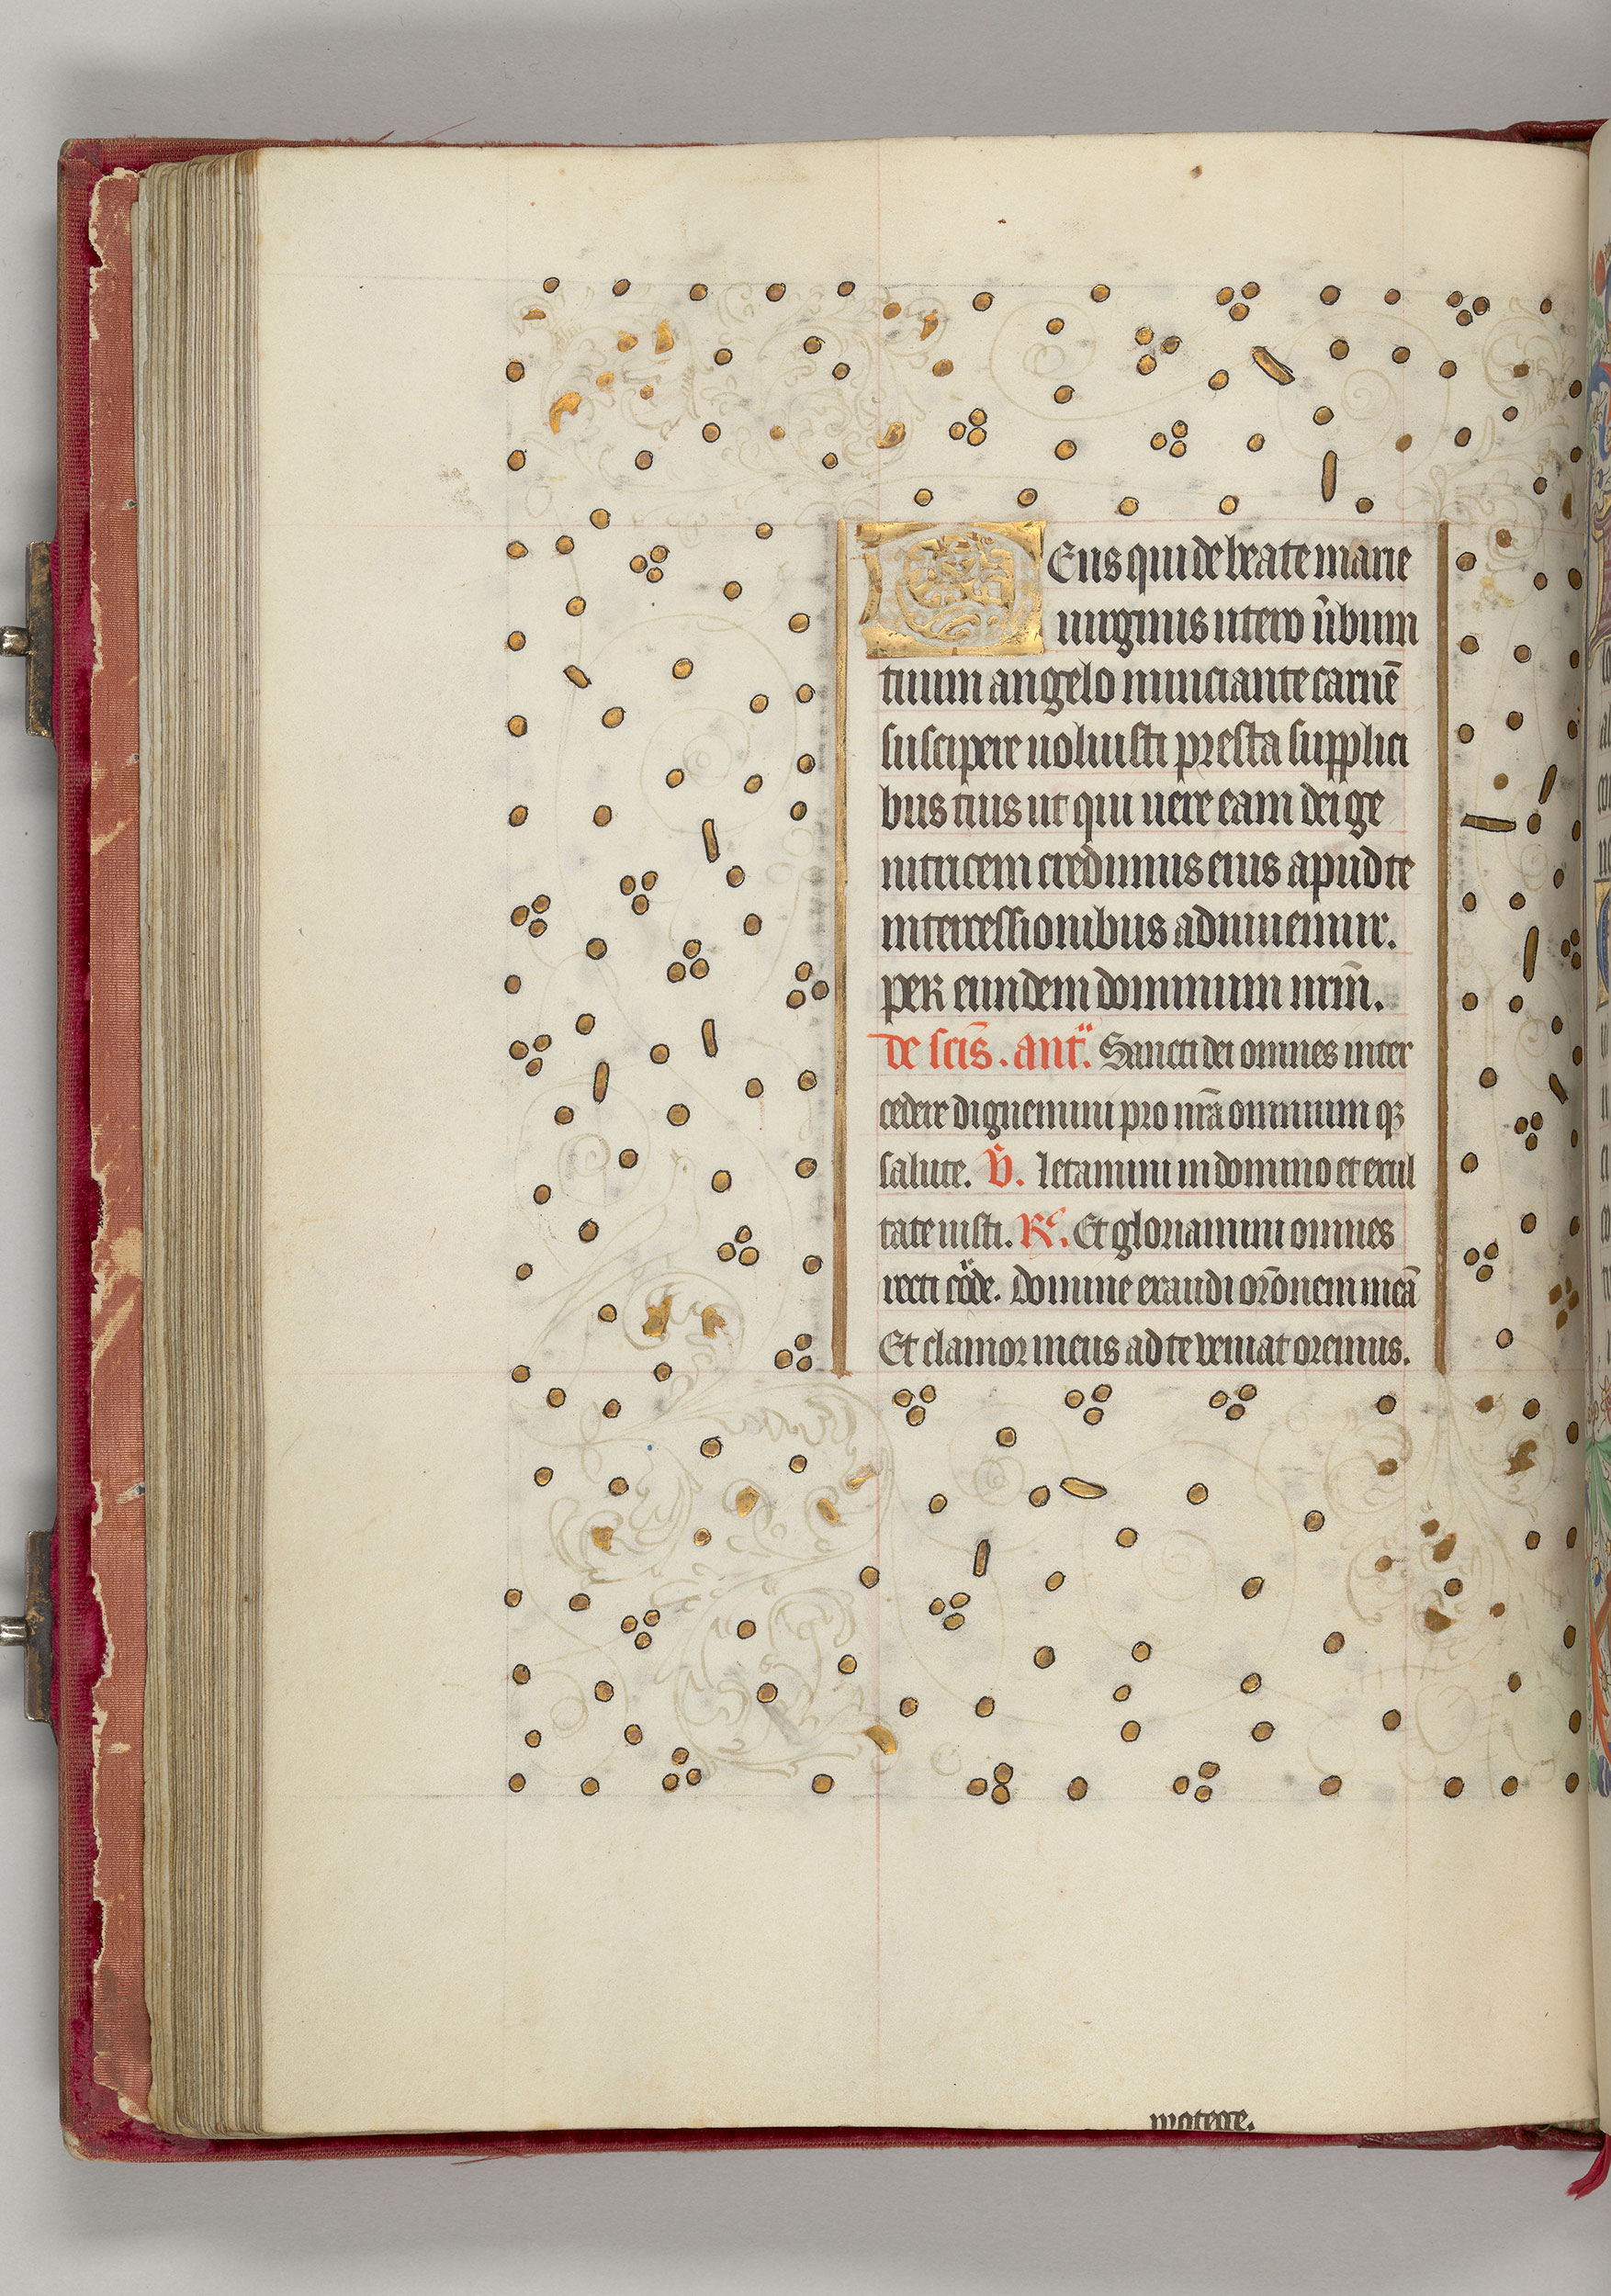 DEus qui de beate marie
uirginis utero ũbum
tuum angelo nunciante carnē
suscipere uoluisti presta supplici
bus tuis ut qui uere eam dei ge
nitricem credimus eius apud te
intercessionibus adiuuemur.
per eundem dominum nrm̄.
De scīs. ant̃. Sancti dei omnes inter
cedere dignemini pro nrā omnium qȝ
salute. v̄. letamini in domino et exul
tate iusti. Rc. Et gloriamini omnes
recti cőde. Domine exaudi oroñem meā
Et clamor meus ad te veniat oremus.